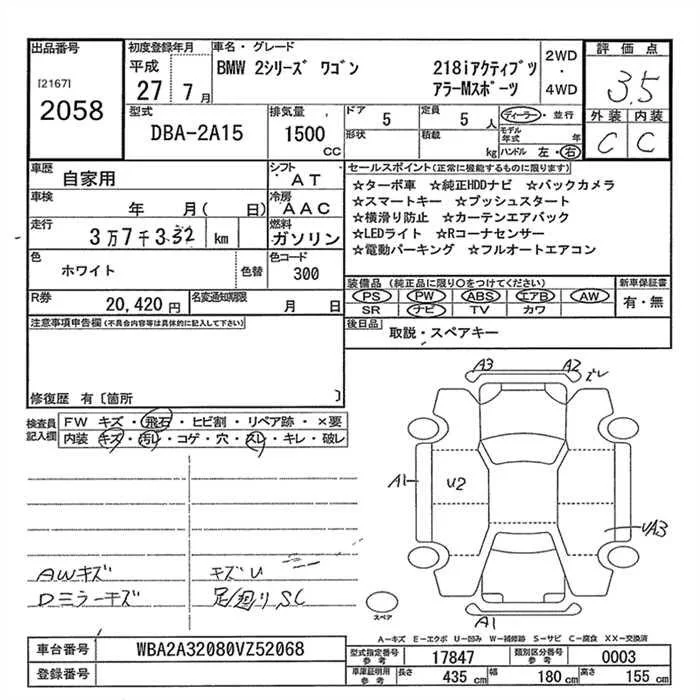 出品番号
[2167]
2058
初度登録年月
平成
27 7月
車名・グレード
BMW 2シリーズ ワゴン
218iアクティブツ
アラーMスポーツ
2WD
・
4WD
評価点
3.5
外装 内装
C C
型式
DBA-2A15
排気量
1500
CC
ドア 5
定員 5 人
形状
積載 kg
ディーラー・並行
モデル年式 年
ハンドル 左・右
車歴
自家用
シフト
AT
車検
年 月( 日)
冷房
AAC
走行
3万7千332 km
燃料
ガソリン
色
ホワイト
色替
色コード
300
R券
20,420円
名変通知期限
月 日
セールスポイント(正常に機能するものに限ります)
☆ターボ車 ☆純正HDDナビ ☆バックカメラ
☆スマートキー ☆プッシュスタート
☆横滑り防止 ☆カーテンエアバック
☆LEDライト ☆Rコーナセンサー
☆電動パーキング ☆フルオートエアコン
装備品(純正品に限り○をつけてください)
PS PW ABS エアB AW
SR ナビ TV カワ
新車保証書
有・無
後日品
取説・スペアキー
注意事項申告欄(不具合内容等は具体的に記入して下さい)
修復歴 有〔箇所 〕
検査員
記入欄
FW キズ・飛石・ヒビ割・リペア跡・×要
内装 キズ・汚レ・コゲ・穴・スレ・キレ・破レ
AWキズ
Dミラーキズ
キズU
足/廻りSC
A3
A2
ビレ
A1
U2
UA3
A1
スペア
A-キズ E-エクボ U-凹み W-補修跡 S-サビ C-腐食 XX-交換済
車台番号
WBA2A32080VZ52068
登録番号
型式指定番号
参考
17847
類別区分番号
参考
0003
車庫証明用
参考
長さ 435cm
幅 180cm
高さ 155cm